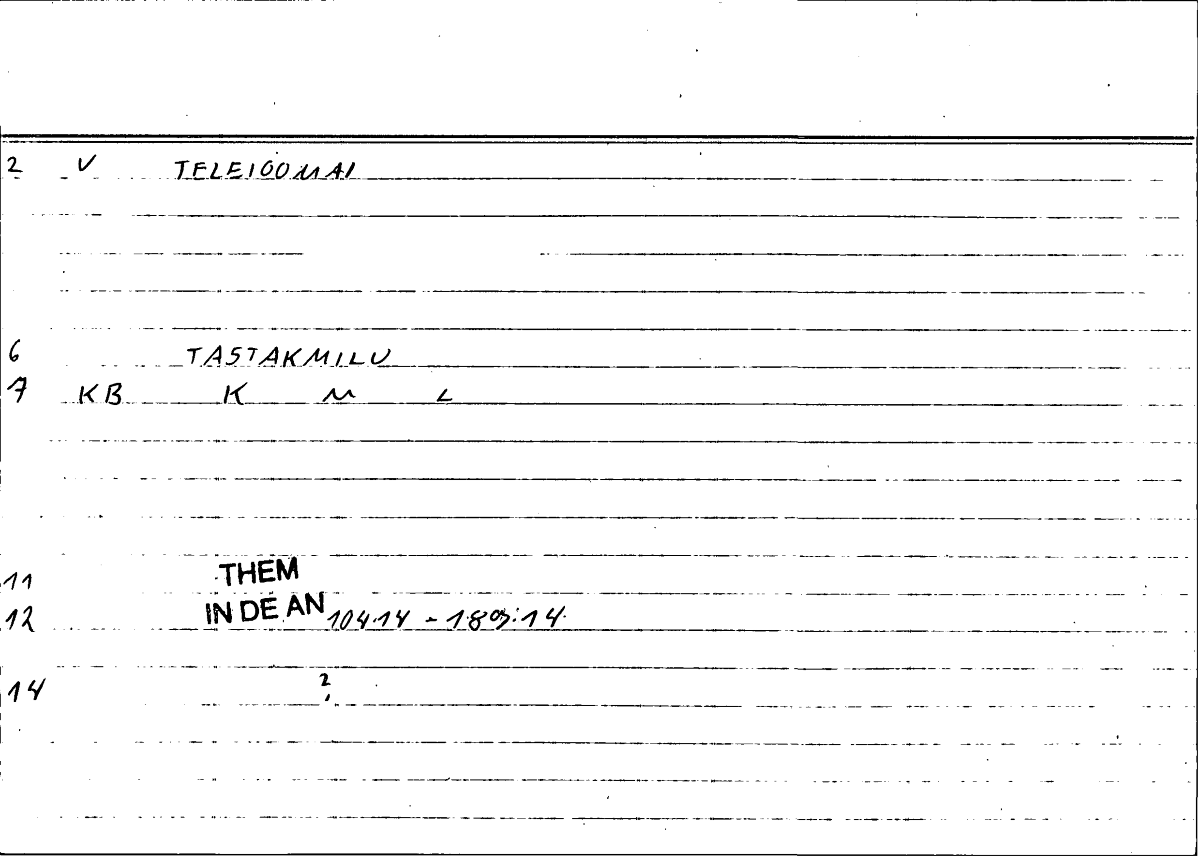 2 V TELEIOOMAI
6 TASTAKMILU
7 KB K M L
11 THEM
12 IN DE AN 10414 - 1803:14.
14 2